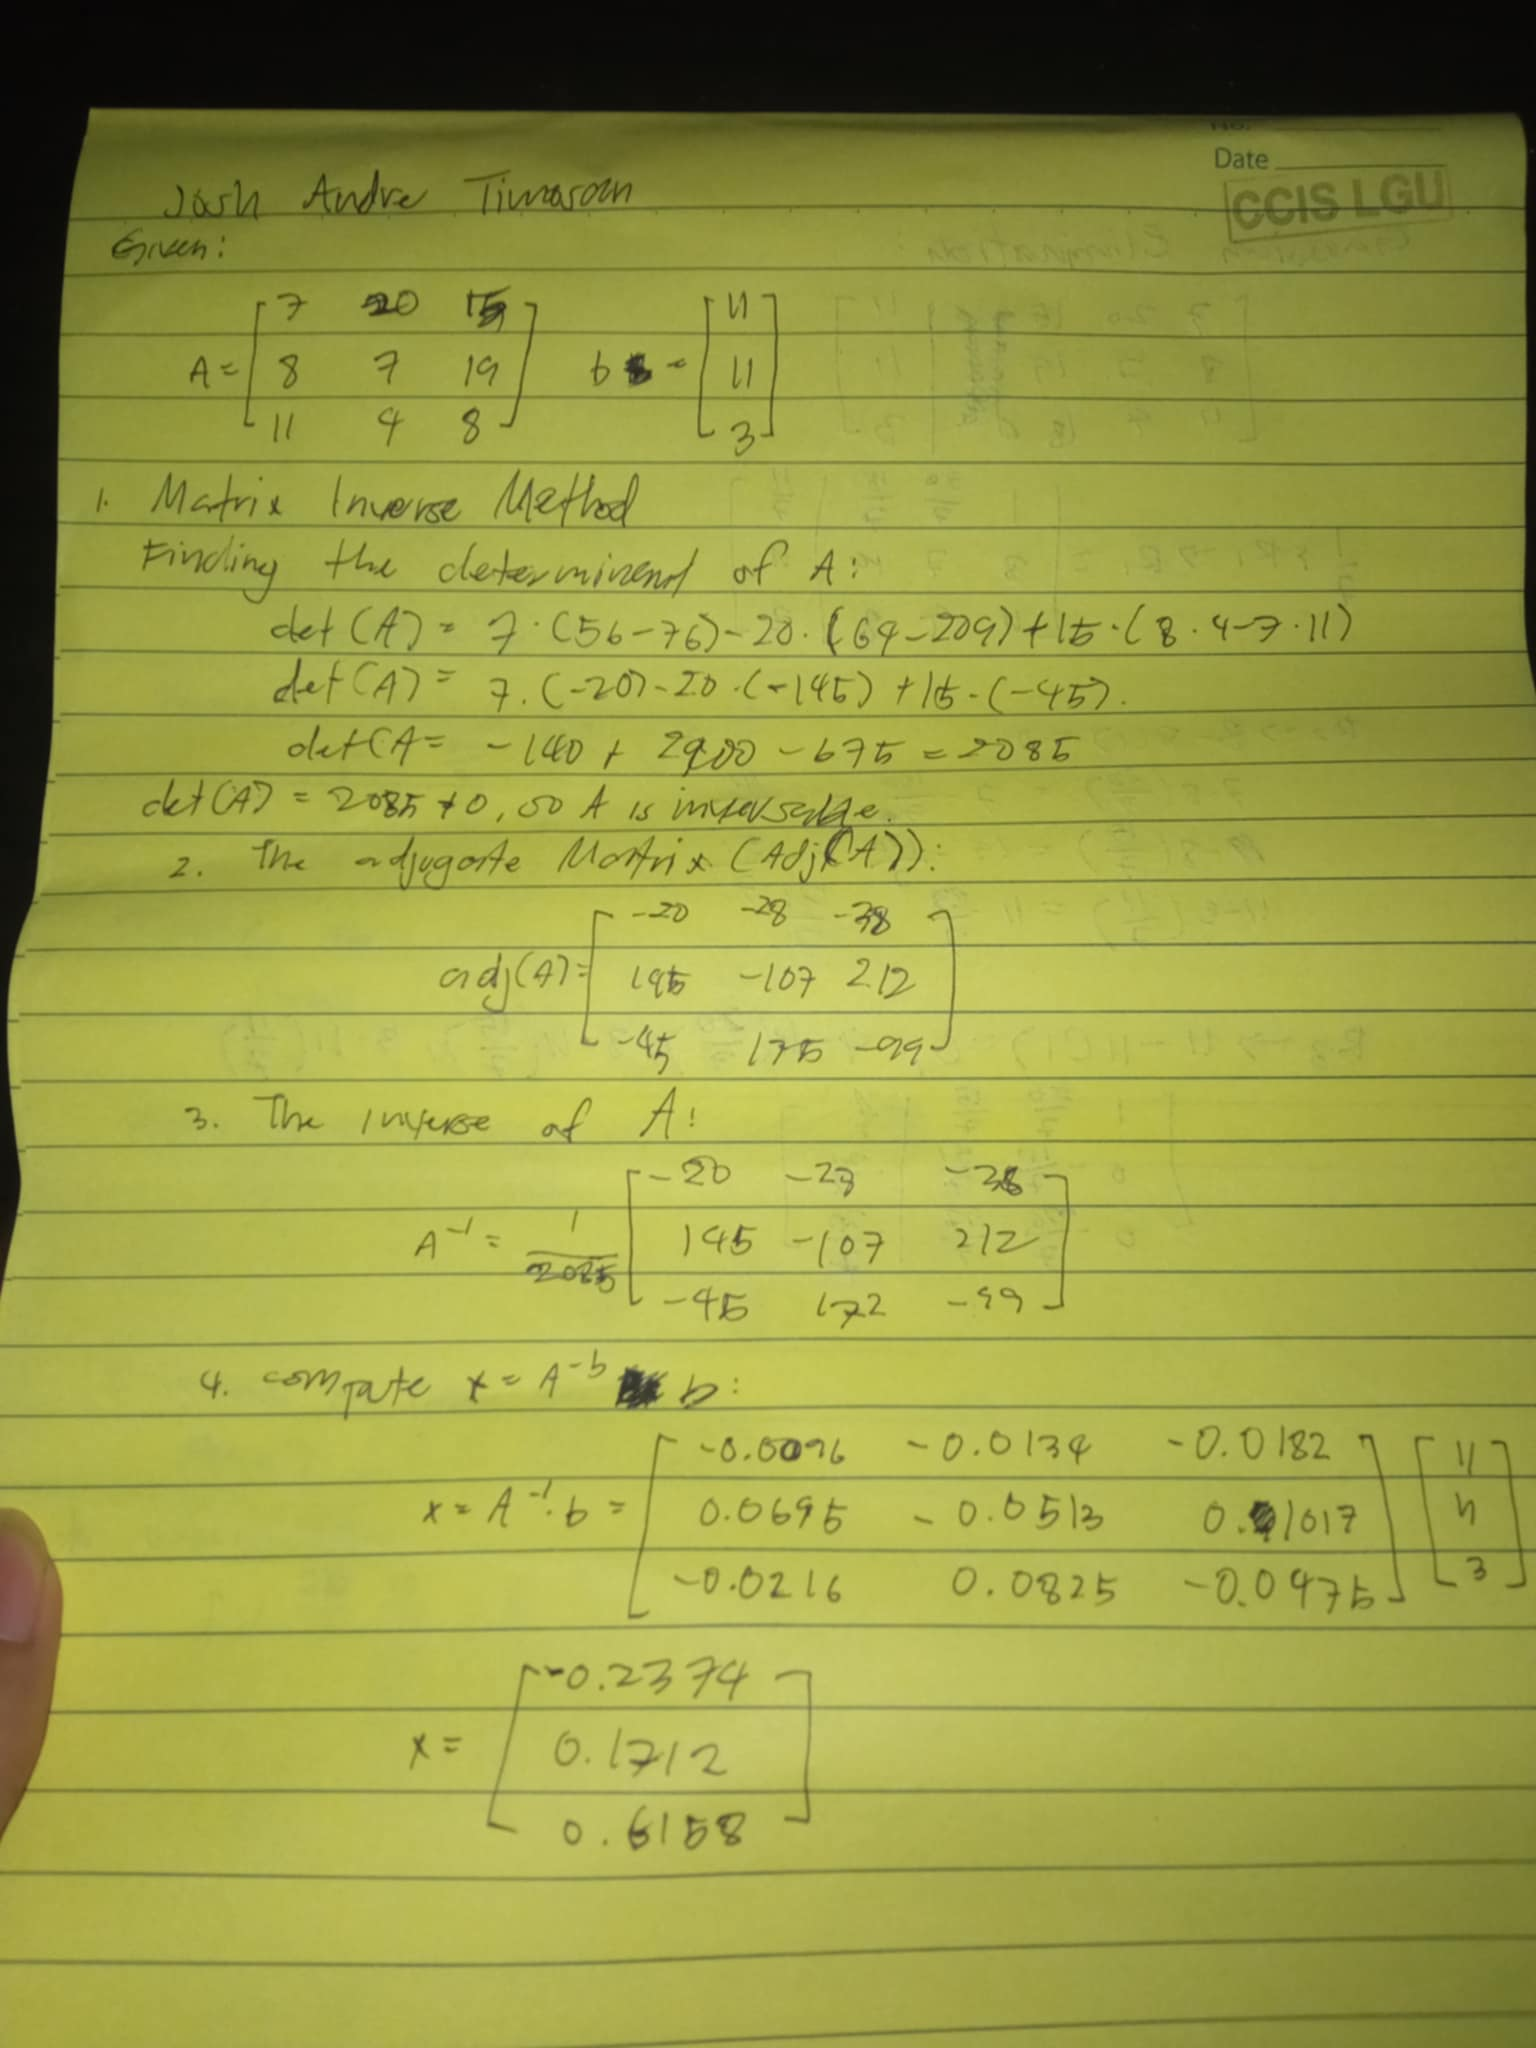 No.
Date
CCIS LGU
Josh Andre Timosan
Given:
A = [ 7 20 15 ] b = [ 11 ]
[ 8 7 19 ] [ 11 ]
[ 11 4 8 ] [ 3 ]
1. Matrix Inverse Method
Finding the determinend of A:
det (A) = 7·(56-76)-20·(64-209)+15·(8·4-7·11)
det (A) = 7·(-20)-20·(-145)+15·(-45).
det (A = -140 + 2900 - 675 = 2085
det (A) = 2085 ≠ 0, so A is
2. The adjugate Matrix (Adj(A)):
adj(A) = [ -20 -28 -38 ]
[ 145 -107 212 ]
[ -45 175 -99 ]
3. The inverse of A:
A⁻¹ = 1/2085 [ -20 -28 -38 ]
[ 145 -107 212 ]
[ -45 172 -99 ]
4. compute x = A⁻ᵇ b:
x = A⁻¹·b = [ -0.0096 -0.0134 -0.0182 ] [ 11 ]
[ 0.0695 -0.0513 0.1017 ] [ 11 ]
[ -0.0216 0.0825 -0.0475 ] [ 3 ]
x = [ -0.2374 ]
[ 0.1712 ]
[ 0.6158 ]